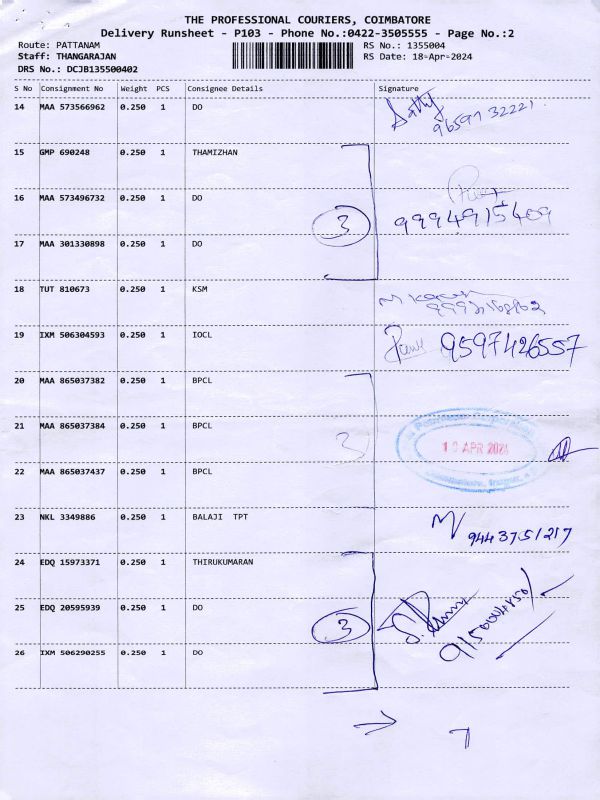 THE PROFESSIONAL COURIERS, COIMBATORE
Delivery Runsheet - P103 - Phone No.:0422-3505555 - Page No.:2
Route: PATTANAM RS No.: 1355004
Staff: THANGARAJAN RS Date: 18-Apr-2024
DRS No.: DCJB135500402
S No Consignment No Weight PCS Consignee Details Signature
14 MAA 573566962 0.250 1 DO
96597 32221
15 GMP 690248 0.250 1 THAMIZHAN
16 MAA 573496732 0.250 1 DO
3 9994915409
17 MAA 301330898 0.250 1 DO
18 TUT 810673 0.250 1 KSM
19 IXM 506304593 0.250 1 IOCL
9597426557
20 MAA 865037382 0.250 1 BPCL
21 MAA 865037384 0.250 1 BPCL
3 APR 2024
22 MAA 865037437 0.250 1 BPCL
23 NKL 3349886 0.250 1 BALAJI TPT
9443751217
24 EDQ 15973371 0.250 1 THIRUKUMARAN
25 EDQ 20595939 0.250 1 DO
3
26 IXM 506290255 0.250 1 DO